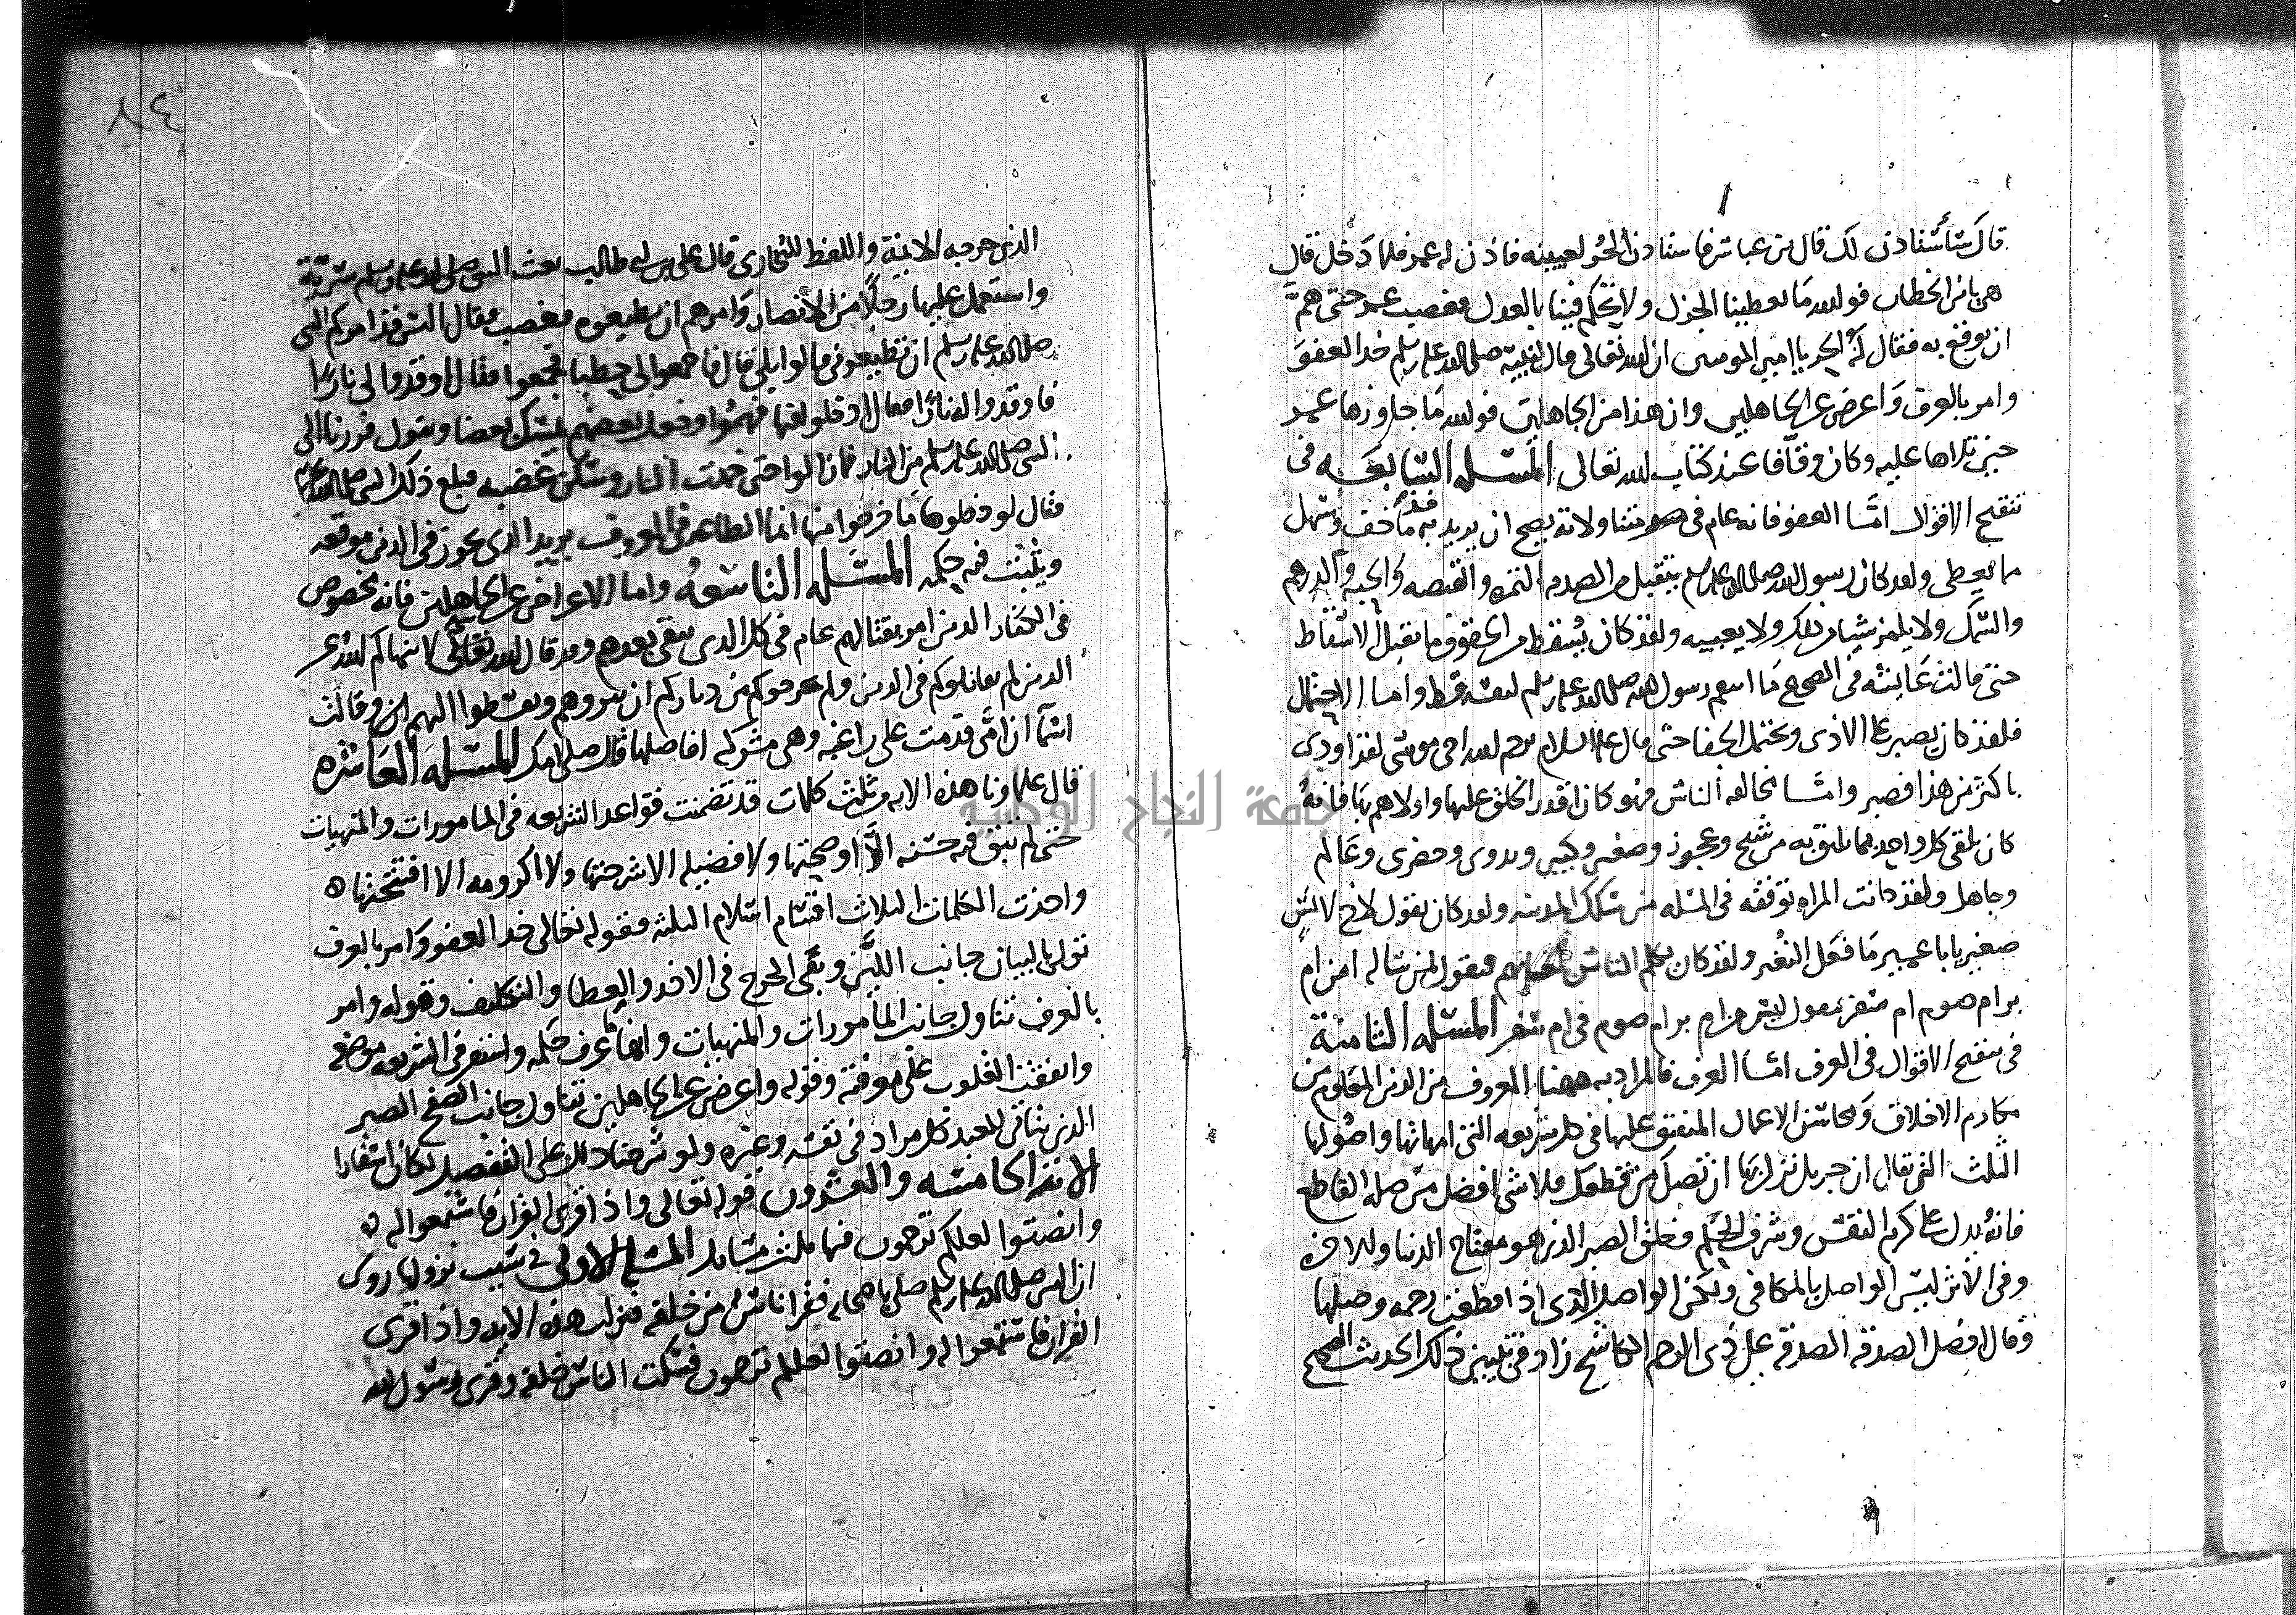 قال سأستاذن لك قال بن عباس فاستاذن الحر لعيينه فاذن له عمر فلما دخل قال
هى يابن الخطاب فوالله ما تعطينا الجزل ولا تحكم فينا بالعدل فغضب عمر حتى هم
ان يوقع به فقال له الحر يا امير المومنين ان الله تعالى قال لنبيه صلى الله عليه وسلم خذ العفو
وامر بالعرف واعرض عن الجاهلين وان هذا من الجاهلين فوالله ما جاوزها عمر
حين تلاها عليه وكان وقافا عند كتاب الله تعالى المسله السابعه في
تنقيح الاقوال اما العفو فانه عام في متناولاته يصح ان يريد به ما خف وسهل
مما يعطى ولقد كان رسول الله صلى الله عليه وسلم يتقبل من الصدقه التمره والقبضه والحبه والدرهم
والسمك ولا يلمز شيا من ذلك ولا يعيبه ولقد كان يسقط من الحقوق ما يقبل الاسقاط
حتى قالت عايشه في الصحيح ما انتقم رسول الله صلى الله عليه وسلم لنفسه قط واما الاحتمال
فلقد كان يصبر على الاذى ويحتمل الجفا حتى قال عليه السلام يرحم الله اخي موسى لقد اوذي
باكثر من هذا فصبر واما مخالقه الناس فهو كان اقدر الخلق عليها واولاهم بها فانه
كان يلقى كل واحد بما يليق به من شيخ وعجوز وصغير وكبير وبدوي وحضري وعالم
وجاهل ولقد كانت المراه توقفه في المسله من سكك المدينه ولقد كان يقول لاخ لانس
صغير يابا عمير ما فعل النغير ولقد كان يكلم الناس بلغاتهم فيقول لمن ساله امن ام
برام صوم ام سفر فيقول ليس من ام برام صوم في ام سفر المسله الثامنة
في تنقيح الاقوال في العرف اما العرف فالمراد به ههنا المعروف من الدين المعلوم من
مكارم الاخلاق ومحاسن الاعمال المتفق عليها في كل شريعه التي امهاتها واصولها
الثلث التي يقال ان جبريل نزل بها ان تصل من قطعك فلا شي افضل من صله القاطع
فانه يدل على كرم النفس وشرف الحلم وخلق الصبر الذي هو مفتاح الدنيا والاخره
وفي الاثر ليس الواصل بالمكافي ولكن الواصل الذي اذا قطعت رحمه وصلها
وقال افضل الصدقه الصدقه على ذي الرحم الكاشح زاد في تبيين ذلك الحديث الصحيح
٨٤
الذي خرجه الايمة واللفظ للبخاري قال علي بن ابي طالب بعث النبي صلى الله عليه وسلم سرية
واستعمل عليها رجلا من الانصار وامرهم ان يطيعوه فغضب فقال اليس قد امركم النبي
صلى الله عليه وسلم ان تطيعوني قالوا بلى قال فاجمعوا لي حطبا فجمعوا فقال اوقدوا لي نارا
فاوقدوا له نارا فقال ادخلوا فيها فهموا وجعل بعضهم يمسك بعضا ويقول فررنا الى
النبي صلى الله عليه وسلم من النار فما زالوا حتى خمدت النار وسكن غضبه فبلغ ذلك النبي صلى الله عليه
فقال لو دخلوها ما خرجوا منها انما الطاعه في المعروف يريد الذي يجوز في الدين موقعه
ويثبت فيه حكمه المسله التاسعه واما الاعراض عن الجاهلين فانه مخصوص
في الكفار الذين امر بقتالهم عام في كل الذي يبقى بعدهم وقد قال الله تعالى لا ينهاكم الله عن
الذين لم يقاتلوكم في الدين ولم يخرجوكم من دياركم ان تبروهم وتقسطوا اليهم وقالت
اسما ان امي قدمت علي راغبه وهي مشركه افاصلها قال صلى امك المسله العاشره
قال علماونا هذه الايه من ثلث كلمات قد تضمنت قواعد الشريعه في المامورات والمنهيات
حتى لم تبق فيه حسنه الا اوضحتها ولا فضيله الا شرحتها ولا اكرومه الا افتتحتها ه
واخذت الكلمات الثلاث اقسام اسلام الثلثه فقوله تعالى خذ العفو وامر بالعرف
تولى بالبيان جانب اللين ونفى الحرج في الاخذ والعطا والتكليف وقوله وامر
بالعرف تناول جانب المامورات والمنهيات وانها عرف حكمه واستقر في الشريعه موضعه
واتفقت القلوب على معرفته وقوله واعرض عن الجاهلين تناول جانب الصفح الصبر
الذي يتاتى للعبد كل مراد في نفسه وغيره ولو شرحنا ذلك على التفصيل لكان اسفارا
الايه الخامسه والعشرون قوله تعالى واذا قرى القران فاستمعوا له ه
وانصتوا لعلكم ترحمون فيها ثلث مسايل المسله الاولى في سبب نزولها روي
ان النبي صلى الله عليه وسلم صلى باصحابه فقرا ناس من خلفه فنزلت هذه الايه واذا قرى
القران فاستمعوا له وانصتوا لعلكم ترحمون فسكت الناس خلفه وقرى رسول الله
جامعة النجاح الوطنية